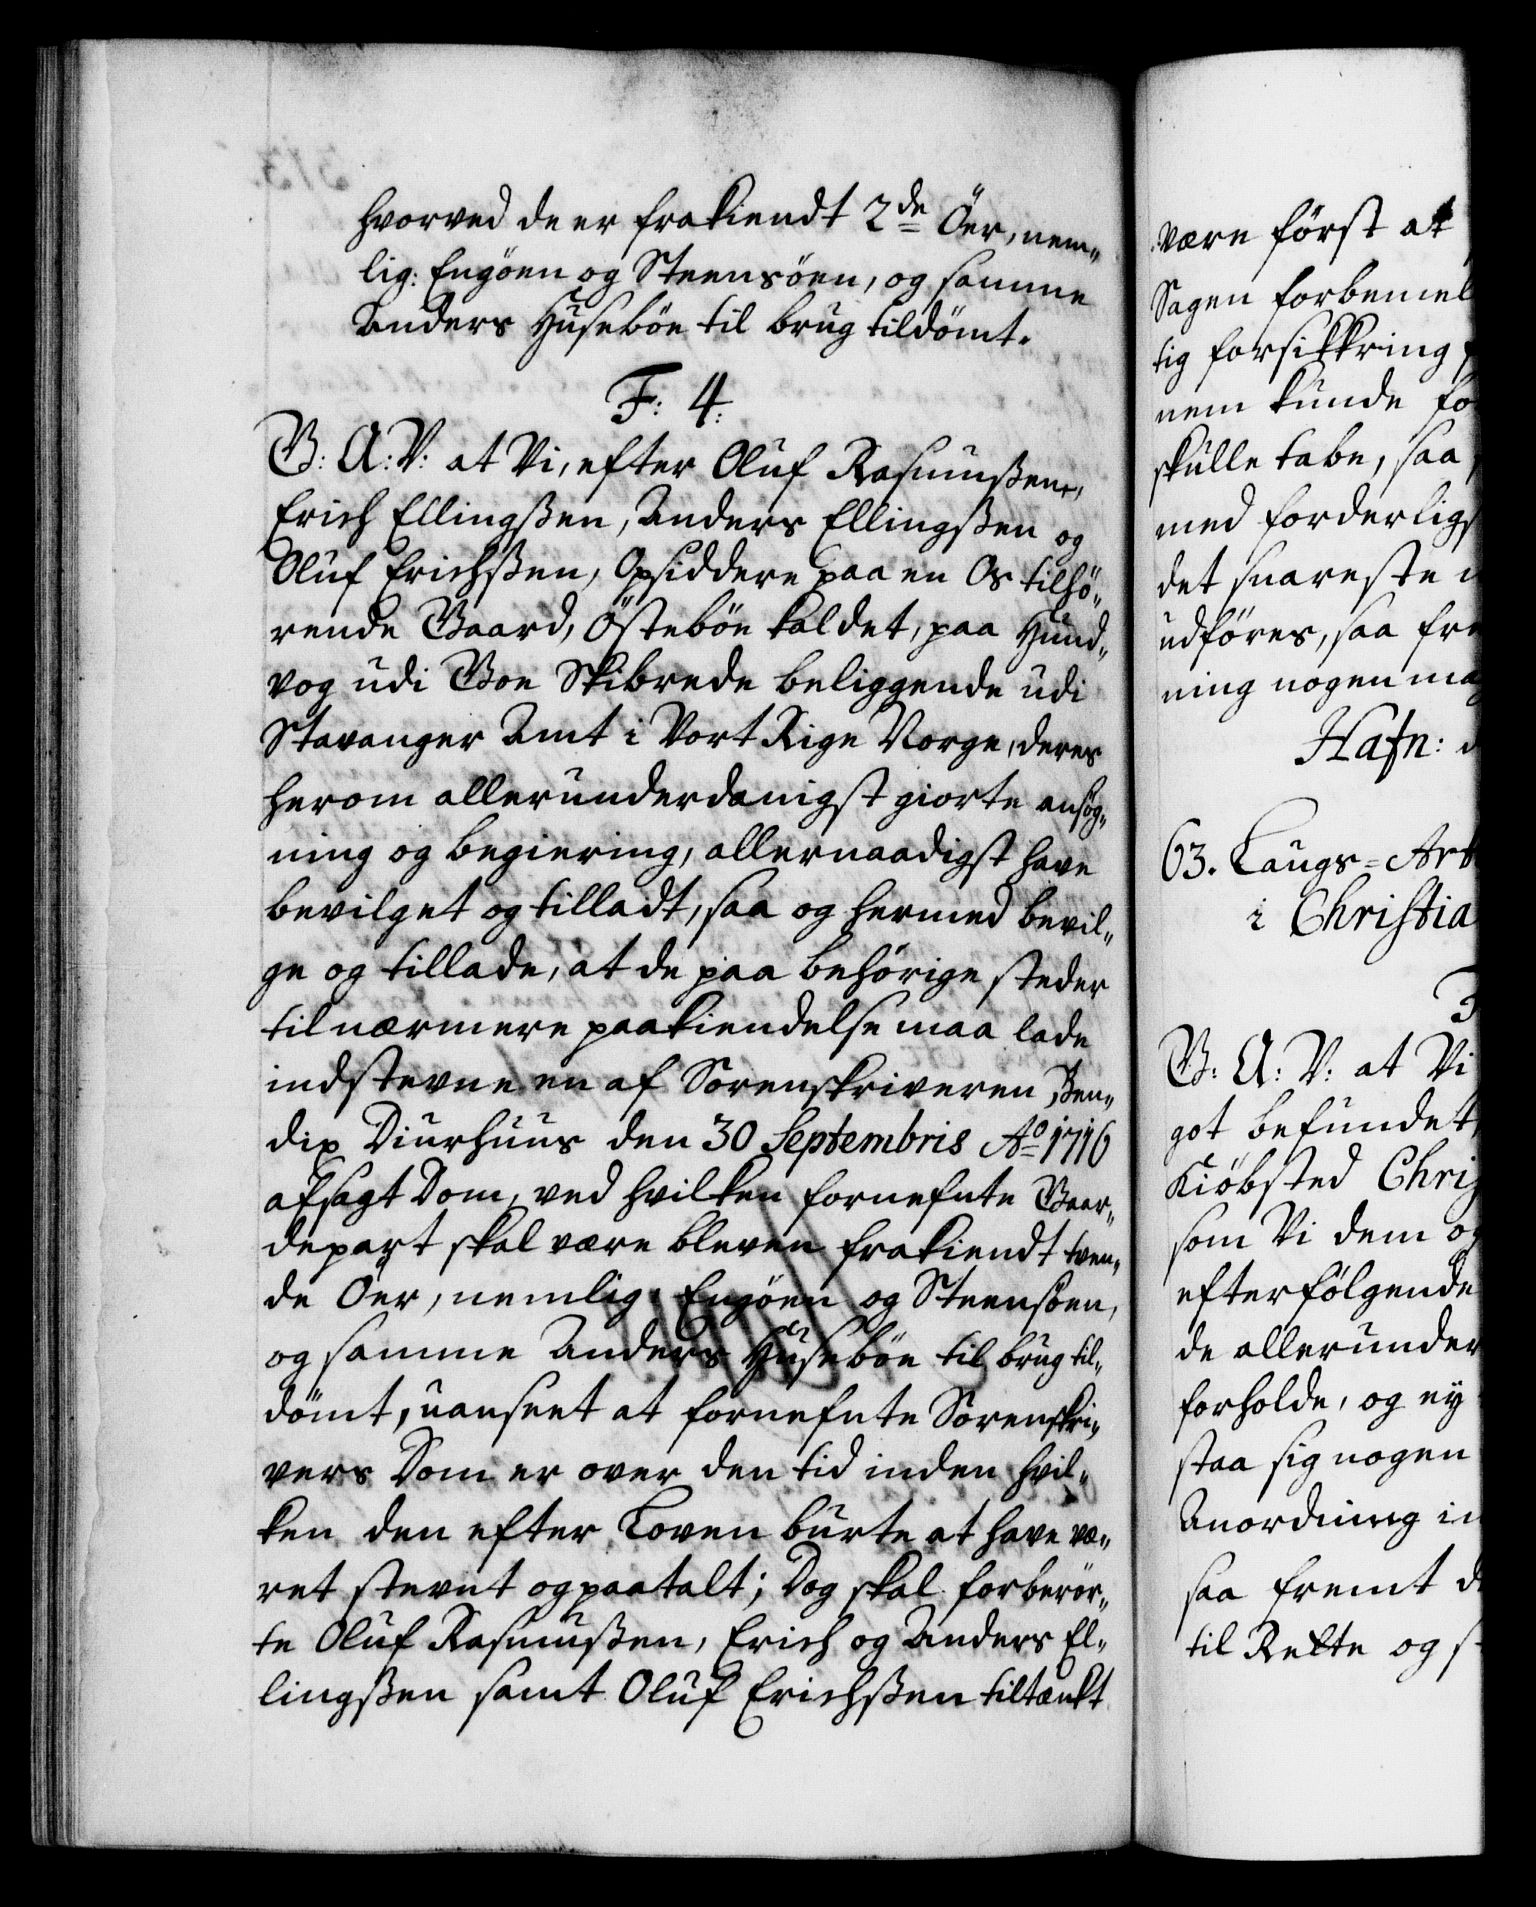 hvorved de er frakiendt 2de Öer, nem-
lig: Engöen og Steensöen, og samme
Anders Huseböe til brug tildömt.
F: 4.
G: A: V: at Vi, efter Oluf Rasmussen,
Erich Ellingssen, Anders Ellingssen og
Oluf Erichssen, Opsiddere paa en Os tilhö-
rende Gaard, Östeböe kaldet, paa Hund-
vog udi Goe Skibrede beliggende udi
Stavanger Amt i Vort Rige Norge, deres
herom allerunderdanigst giorte ansög-
ning og begiering, allernaadigst have
bevilget og tilladt, saa og hermed bevil-
ge og tillade, at de paa behörige steder
til nærmere paakiendelse maa lade
indstevne en af Sorenskriveren Ben-
dix Diurhuus den 30 Septembris Ao 1716
afsagt Dom, ved hvilken fornefnte Gaar-
depart skal være bleven frakiendt tven-
de Öer, nemlig: Engöen og Steensöen,
og samme Anders Huseböe til brug til-
dömt, uanseet at fornefnte Sorenskri-
vers Dom er over den tid inden hvil-
ken den efter Loven burte at have væ-
ret stevnt og paatalt; Dog skal forberör-
te Oluf Rasmussen, Erich og Anders El-
lingssen samt Oluf Erichssen tiltænkt
være först at
Sagen forbemel
tig forsikkring
nem kunde fo
skulle tabe, saa
med forderligs
det snareste
udföres, saa fre
ning nogen maa
Hafn: d
63. Laugs-Art
i Christia
G: A: V: at Vi
got befundet,
Kiöbsted Chris
som Vi dem og
efterfölgende
de allerunder
forholde, og ey
staa sig nogen
Anordning in
saa fremt d
til Rette og s